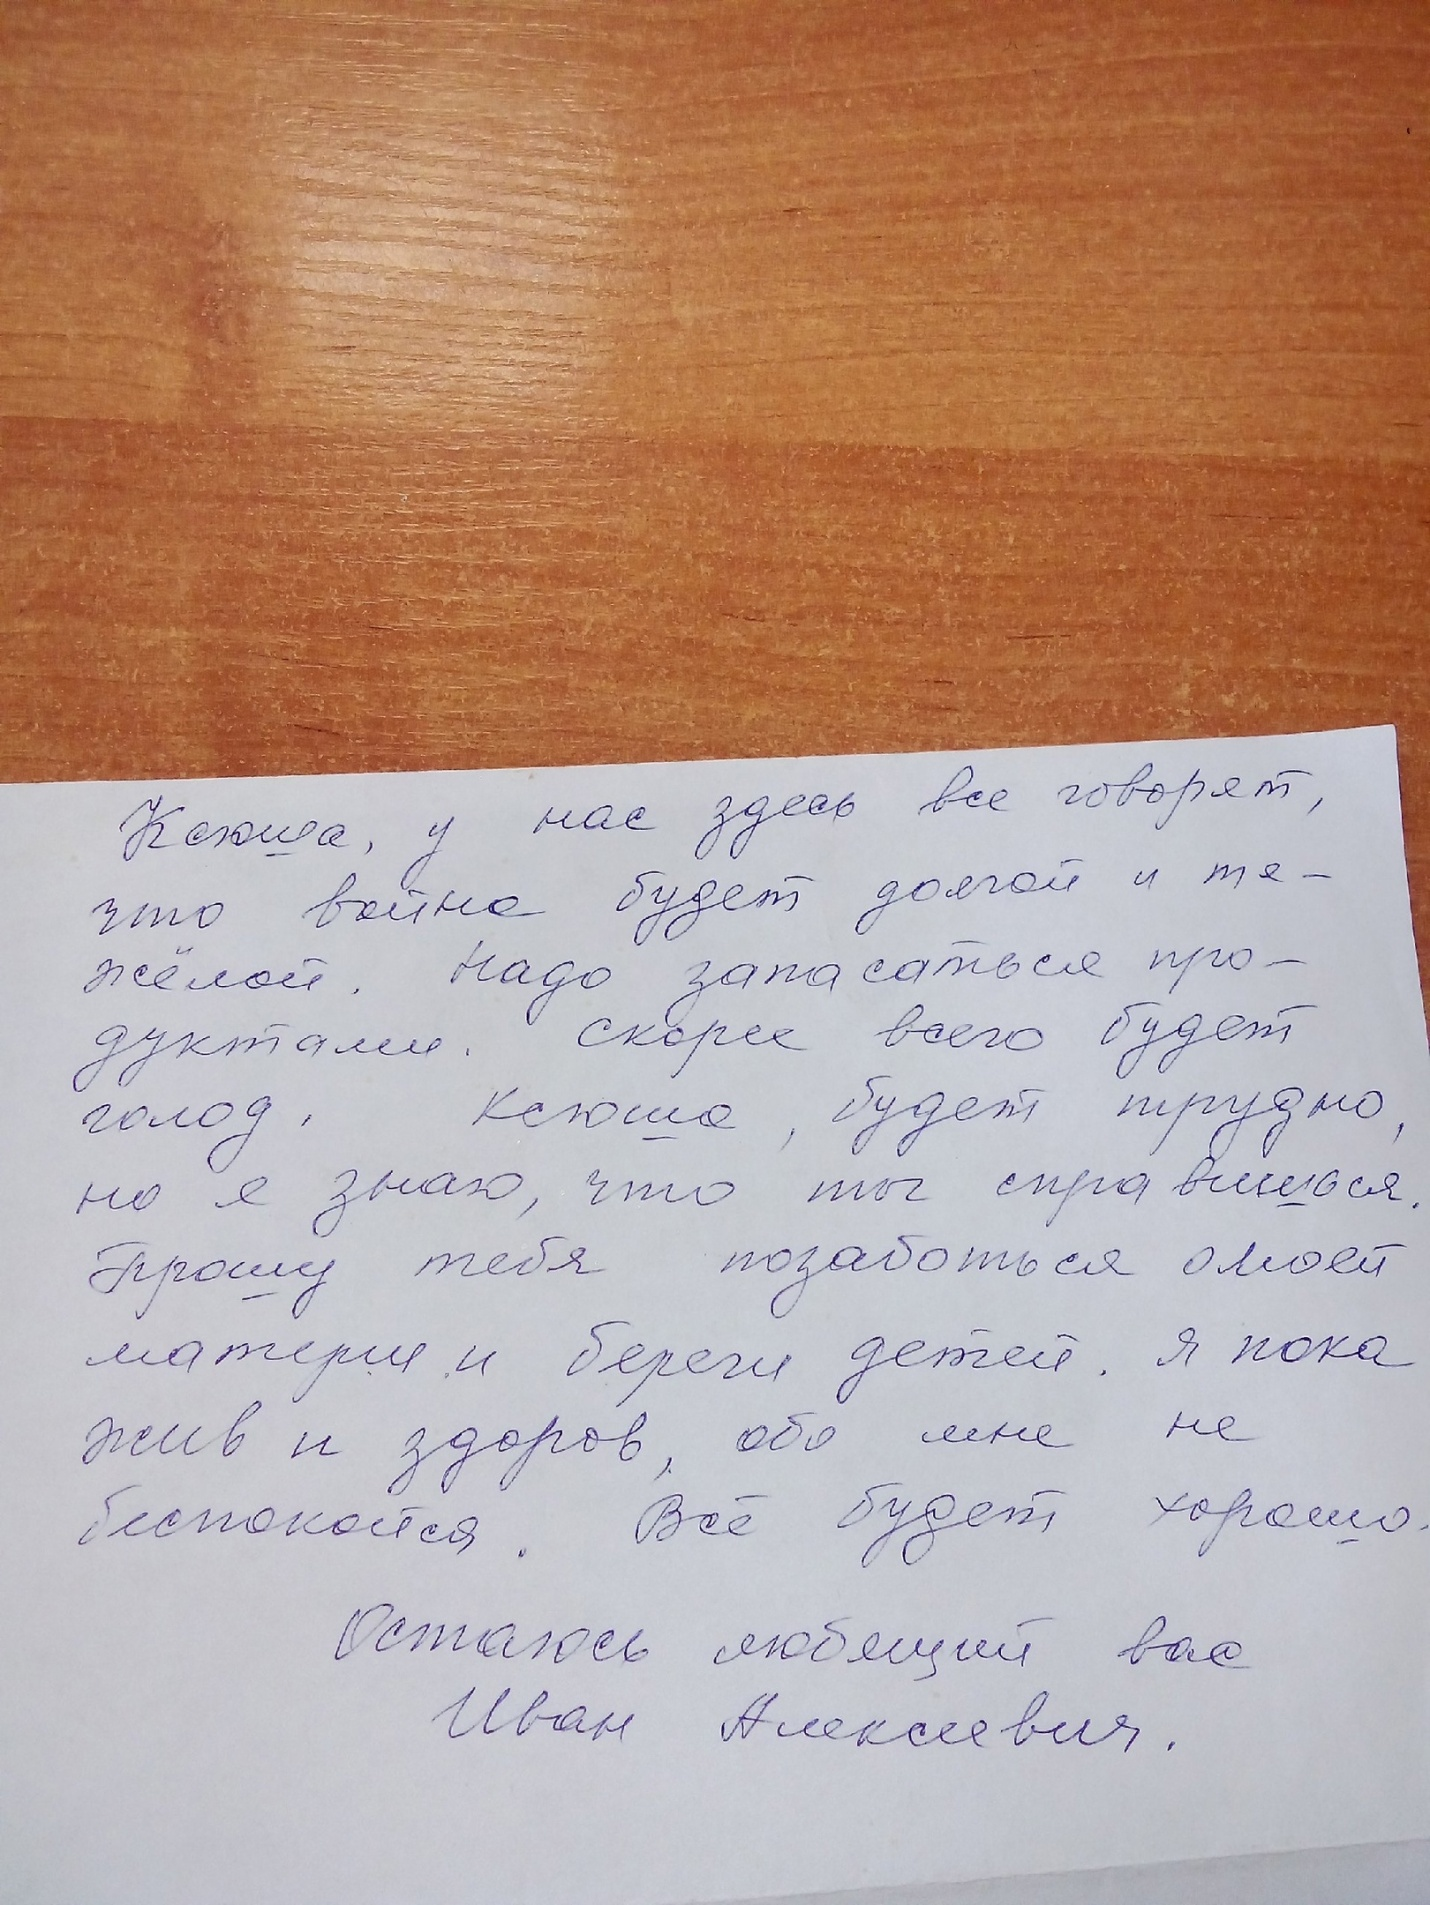 Ксюша, у нас здесь все говорят,
что война будет долгой и тя-
жёлой. Надо запасаться про-
дуктами. Скорее всего будет
голод. Ксюша, будет трудно,
но я знаю, что ты справишься.
Прошу тебя позаботься о моей
матери и береги детей. Я пока
жив и здоров, обо мне не
беспокойся. Всё будет хорошо.
Остаюсь любящий вас
Иван Алексеевич.